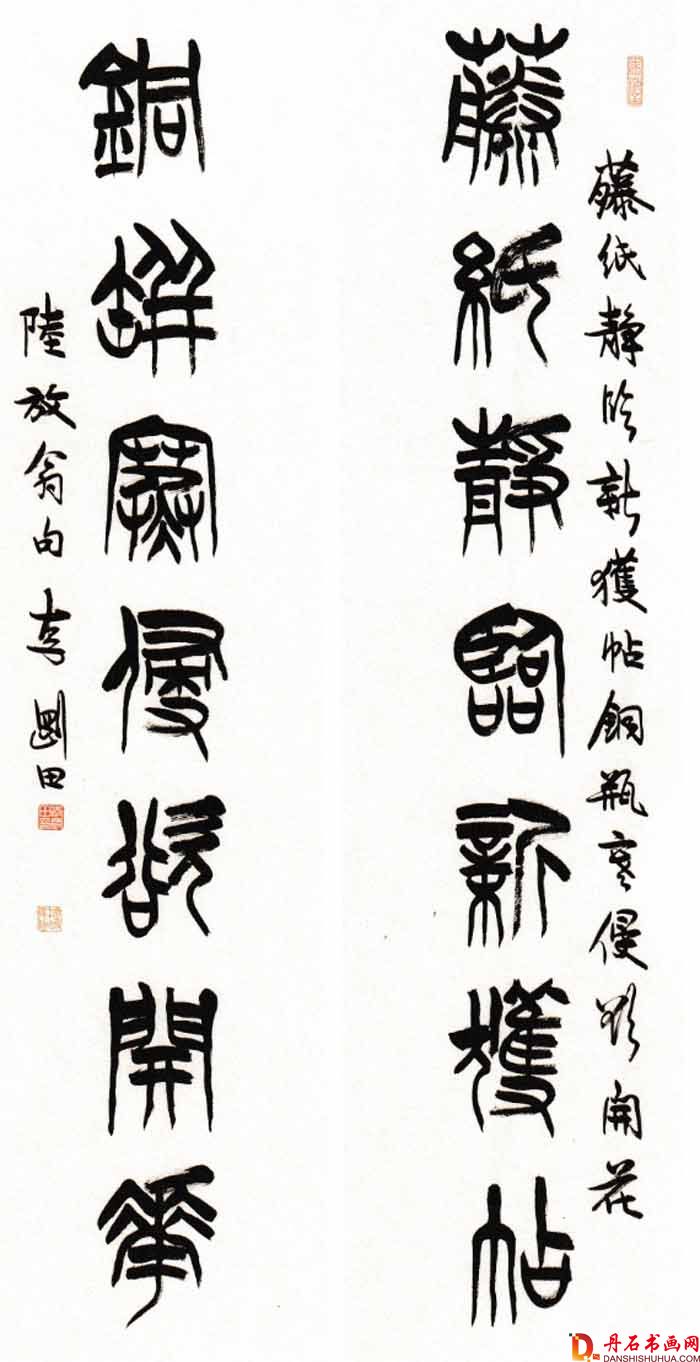 藤紙静臨新獲帖銅瓶寒侵欲開花
藤紙静臨新獲帖
銅缾寒侵欲開華
陸放翁句李剛田
丹石书画网
DANSHISHUHUA.COM